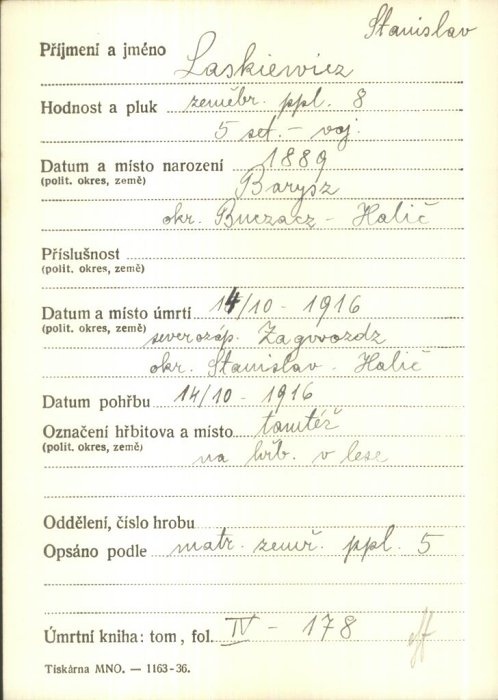 Stanislav
Příjmení a jméno Laskiewicz
Hodnost a pluk zeměbr. ppl. 8
5 set. - voj.
Datum a místo narození 1889
(polit. okres, země) Barysz
okr. Buczacz - Halič
Příslušnost
(polit. okres, země)
Datum a místo úmrtí 14/10 - 1916
(polit. okres, země) severozáp. Zagwozdz
okr. Stanislav - Halič
Datum pohřbu 14/10 - 1916
Označení hřbitova a místo tamtéž
(polit. okres, země) na hřb. v lese
Oddělení, číslo hrobu
Opsáno podle matr. zemř. ppl. 5
Úmrtní kniha: tom, fol. IV - 178
Tiskárna MNO. — 1163-36.